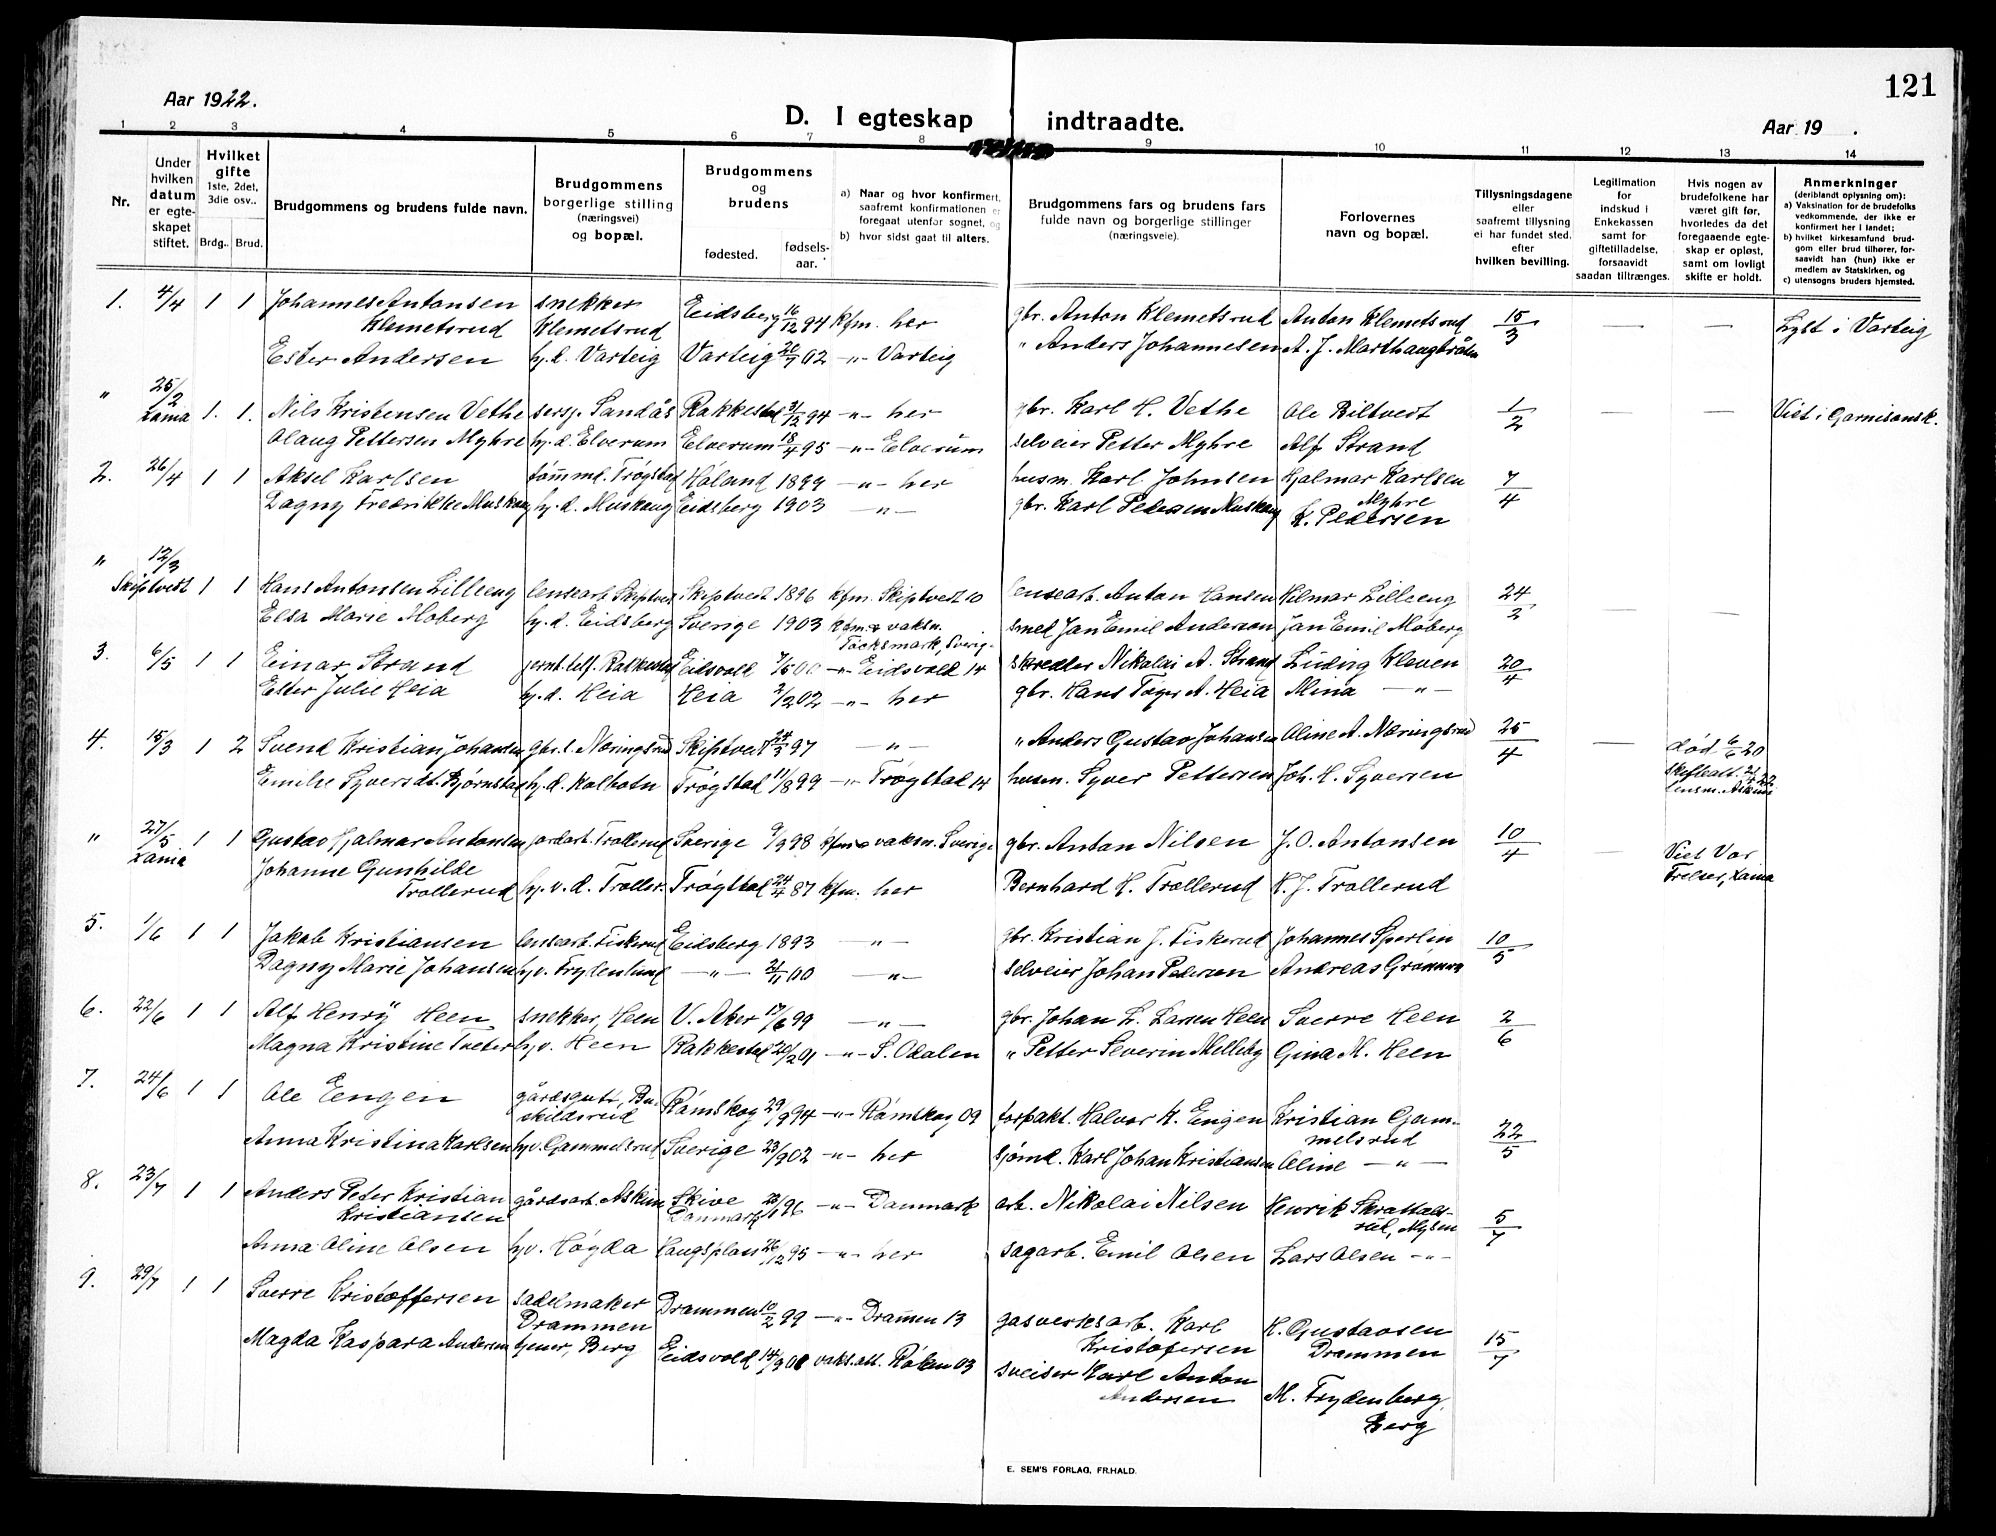 121
Aar 1922.
D. I egteskap indtraadte.
Aar 19 .
1 2 3 4 5 6 7 8 9 10 11 12 13 14
Nr.
Under hvilken datum er egteskapet stiftet.
Hvilket gifte 1ste, 2det, 3die osv..
Brdg.. Brud.
Brudgommens og brudens fulde navn.
Brudgommens borgerlige stilling (næringsvei) og bopæl.
Brudgommens og brudens
fødested. fødsels-aar.
a) Naar og hvor konfirmert, saafremt konfirmationen er foregaat utenfor sognet, og
b) hvor sidst gaat til alters.
Brudgommens fars og brudens fars fulde navn og borgerlige stillinger (næringsveie).
Forlovernes navn og bopæl.
Tillysningsdagene eller saafremt tillysning ei har fundet sted, efter hvilken bevilling.
Legitimation for indskud i Enkekassen samt for giftetilladelse, forsaavidt saadan tiltrænges.
Hvis nogen av brudefolkene har været gift før, hvorledes da det foregaaende egteskap er opløst, samt om lovligt skifte er holdt.
Anmerkninger (deriblandt oplysning om):
a) Vaksination for de brudefolks vedkommende, der ikke er konfirmert her i landet;
b) hvilket kirkesamfund brudgom eller brud tilhører, forsaavidt han (hun) ikke er medlem av Statskirken, og
c) utensogns bruders hjemsted.
1. 4/4 1 1 Johannes Antonsen Klemetsrud snekker Klemetsrud Eidsberg 16/12 94 kfm. her gbr. Anton Klemetsrud Anton Klemetsrud 15/3 — — Lyst i Varteig
Ester Andersen hj. d. Varteig Varteig 20/7 02 —"— Varteig " Anders Johannesen A. J. Marthaugbråten
" 25/2 Xania 1. 1. Nils Kristensen Vethe sersj. Sandås Rakkestad 31/12 94 —"— her gbr. Karl H. Vethe Ole Biltvedt 1/2 — — Viet i Garnisonsk.
Olaug Pettersen Myhre hj. d. Elverum Elverum 18/4 95 —"— Elverum selveier Petter Myhre Alf Strand
2. 26/4 1 1 Aksel Karlsen tømmd. Trøgstad Høland 1899 —"— her husm. Karl Johnsen Hjalmar Karlsen Myhre 7/4
Dagny Fredrikke Muskaug hj. d. Muskaug Eidsberg 1903 —"— gbr. Karl Pedersen Muskaug K. Pedersen
" 12/3 Skiptvedt 1 1 Hans Antonsen Lilleeng lensearb. Skiptvedt Skiptvedt 1896 kfm. Skiptvedt 10 lensearb. Anton Hansen Hilmar Lilleeng 24/2 — —
Elsa Marie Moberg hj. d. Eidsberg Sverige 1903 kfm. & vaksn. Töcksmark, Sverig- smed Jan Emil Anderson Jan Emil Moberg
3. 6/5 1 1 Einar Strand jernb.telf. Rakkestad Eidsvold 7/5 00 —"— Eidsvold 14 skredder Nikolai A. Strand Ludvig Kleven 20/4
Ester Julie Heia hj. d. Heia Heia 2/2 02 —"— her gbr. Hans Tøger A. Heia Mina —"—
4. 15/3 1 2 Svend Kristian Johansen gbr.s. Næringsrud Skiptvedt 24/3 97 —"— " Anders Gustav Johansen Oline A. Næringsrud 25/4 — død 6/6 20
Emilie Syversdt. Bjørnstad hj. d. Kolbotn Trøgstad 11/8 99 —"— Trøgstad 14 husm. Syver Pettersen Joh. H. Syversen skifteatt. 21/4 22 lensm. Askim
" 27/5 Xania 1 1 Gustav Hjalmar Antonsen jordarb. Trollerud Sverige 9/9 98 kfm & vaksn. Sverige gbr. Anton Nilsen J. O. Antonsen 10/4 — Viet Vor Frelser, Xania
Johanne Gunhilde Trollerud hj. v. d. Troller. Trøgstad 24/4 87 kfm. her Bernhard H. Trollerud H. J. Trollerud
5. 1/6 1 1 Jakob Kristiansen lensearb. Fiskerud Eidsberg 1893 —"— gbr. Kristian J. Fiskerud Johannes Sperlin 10/5
Dagny Marie Johansen hjv. Frydenlund —"— 21/11 00 —"— selveier Johan Pedersen Andreas Grønnern
6. 22/6 1 1 Alf Henry Heen snekker, Heen V. Aker 17/6 99 —"— gbr. Johan L. Larsen Heen Sverre Heen 2/6
Magna Kristine Tveter hjv. Heen Rakkestad 20/2 01 —"— S. Odalen " Petter Severin Melleby Gina M. Heen
7. 24/6 1 1 Ole Engen gårdsgutt, Buskildsrud Rømskog 29/9 94 —"— Rømskog 09 forpakt. Halvor K. Engen Kristian Gammelsrud 22/5
Anna Kristina Karlsen hjv. Gammelsrud Sverige 23/9 02 —"— her sjømd. Karl Johan Kristiansen Oline —"—
8. 23/7 1 1 Anders Peter Kristian Kristiansen gårdsarb. Askim Skive Danmark 23/1 96 —"— Danmark arb. Nikolai Nilsen Henrik Skrattels-rud, Mysen 5/7
Anna Oline Olsen hjv. Høgda Haugsplan 26/12 95 —"— her sagarb. Emil Olsen Lars Olsen —"—
9. 29/7 1 1 Sverre Kristoffersen sadelmaker Drammen Drammen 10/2 99 —"— Drammen 13 gasverksarb. Karl Kristofersen H. Gustavsen Drammen 15/7
Magda Kaspara Andersen tjener, Berg Eidsvold 14/9 01 vaks.att. Roken 03 sveiser Karl Anton Andersen M. Frydenberg, Berg
E. SEM'S FORLAG, FR.HALD.